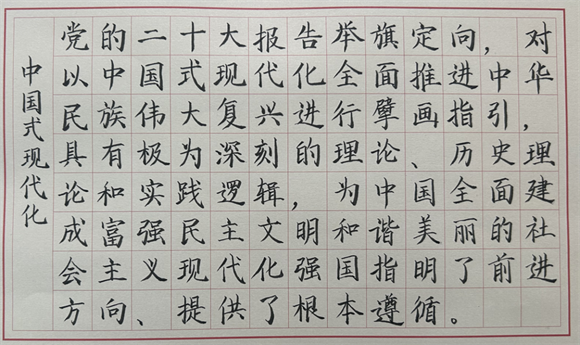 中国式现代化
党的二十大报告举旗定向，对
以中国式现代化全面推进中华
民族伟大复兴进行擘画指引，
具有极为深刻的理论、历史理
论和实践逻辑，为中国全面建
成富强民主文明和谐美丽的社
会主义现代化强国指明了前进
方向、提供了根本遵循。